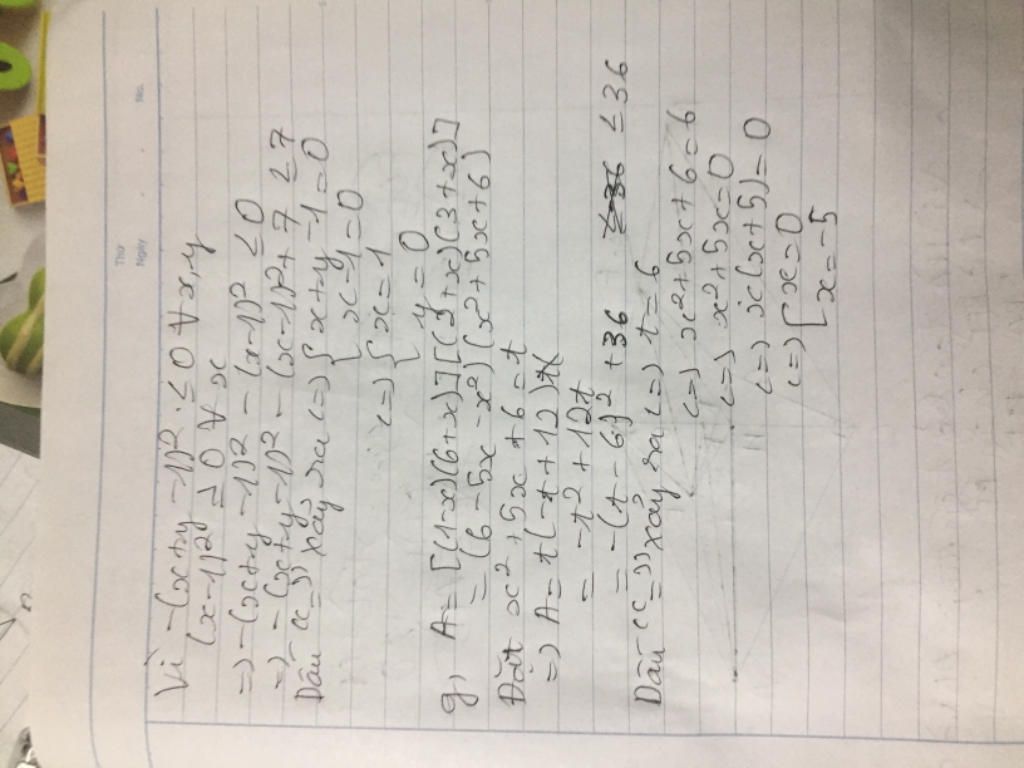 Thứ
Ngày
No.
Vì -(x+y-1)² ≤ 0 ∀ x,y
(x-1)² ≥ 0 ∀ x
=> -(x+y-1)² - (x-1)² ≤ 0
=> -(x+y-1)² - (x-1)² + 7 ≤ 7
Dấu "=" xảy ra <=> { x+y-1=0
x-1=0
<=> { x=1
y=0
g, A=[(1-x)(6+x)][(2+x)(3+x)]
= (6-5x-x²)(x²+5x+6)
Đặt x²+5x+6=t
=> A = t(-t+12)
= -t²+12t
= -(t-6)²+36 ≤ 36
Dấu "=" xảy ra <=> t=6
<=> x²+5x+6=6
<=> x²+5x=0
<=> x(x+5)=0
<=> [ x=0
x=-5